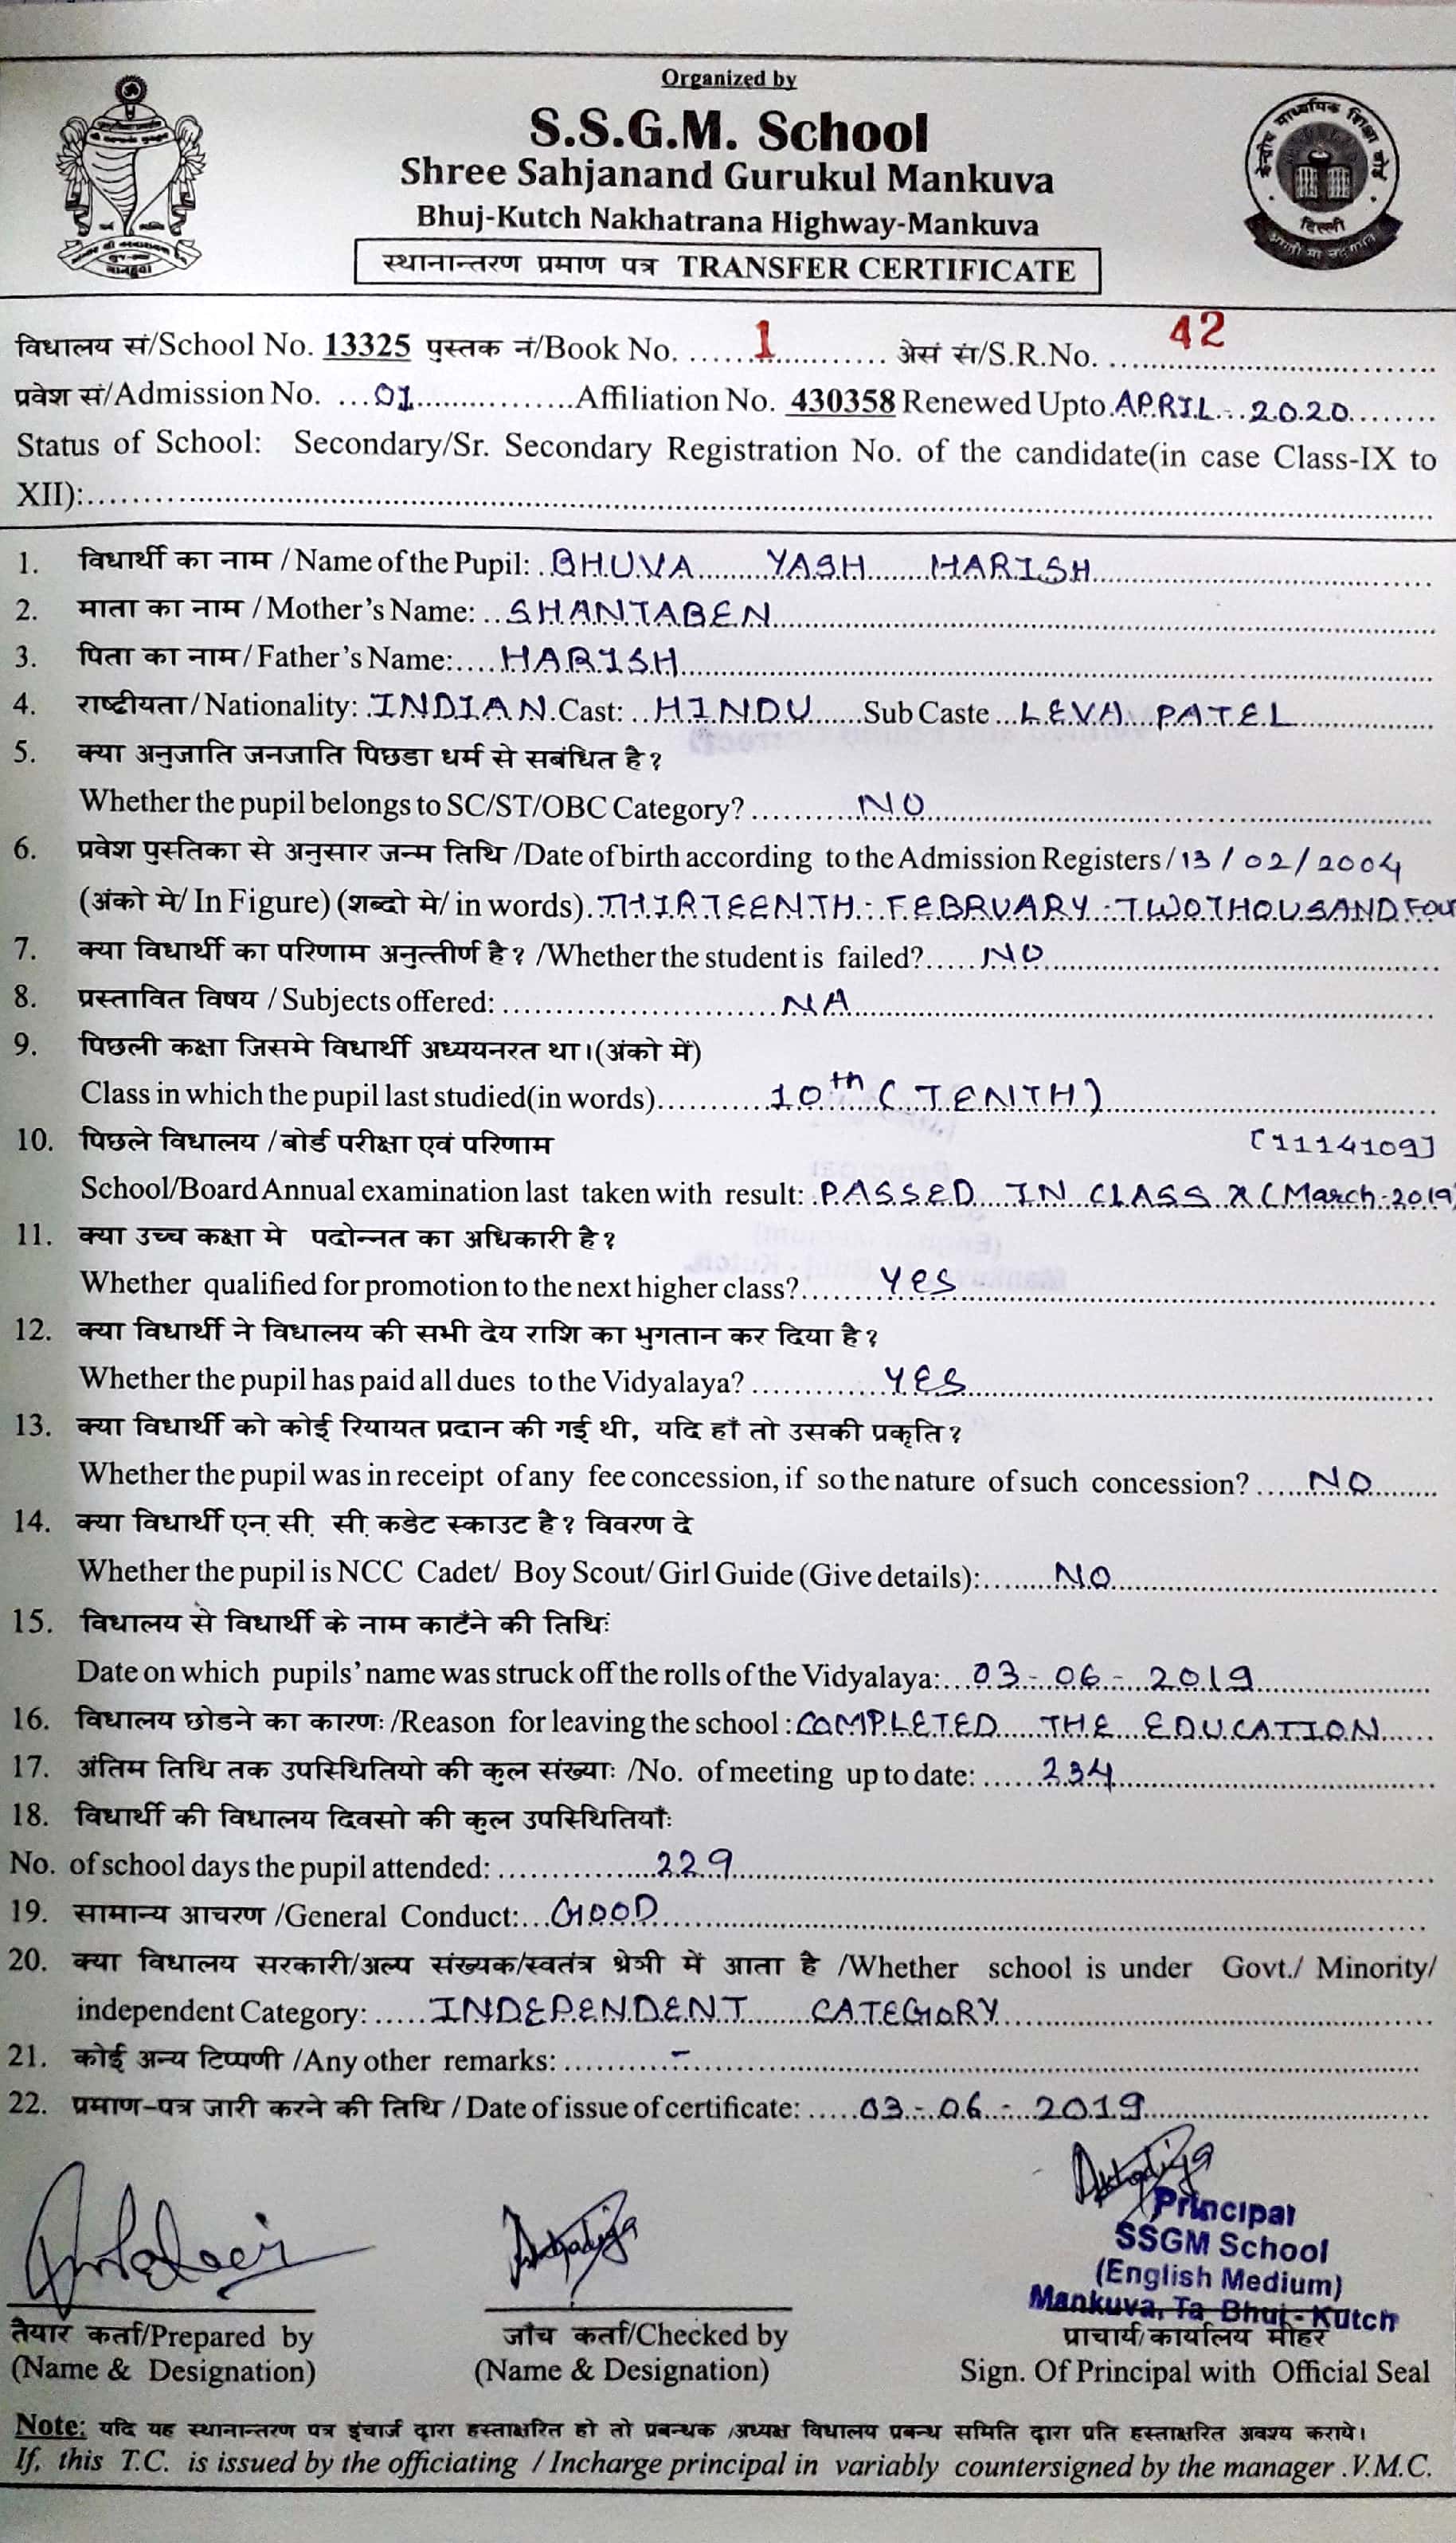 Organized by
S.S.G.M. School
Shree Sahjanand Gurukul Mankuva
Bhuj-Kutch Nakhatrana Highway-Mankuva
स्थानान्तरण प्रमाण पत्र TRANSFER CERTIFICATE
केन्द्रीय माध्यमिक शिक्षा बोर्ड
दिल्ली
विधालय सं/School No. 13325 पुस्तक नं/Book No. ......1........... अेसं सं/S.R.No. ...42...
प्रवेश सं/Admission No. ...01...............Affiliation No. 430358 Renewed Upto.APRIL - 2020.........
Status of School: Secondary/Sr. Secondary Registration No. of the candidate(in case Class-IX to
XII):..........
1. विधार्थी का नाम /Name of the Pupil: BHUVA YASH HARISH
2. माता का नाम /Mother's Name: SHANTABEN
3. पिता का नाम/Father's Name: HARISH
4. राष्टीयता/Nationality: INDIAN Cast: HINDU Sub Caste LEVA PATEL
5. क्या अनुजाति जनजाति पिछडा धर्म से सबंधित है?
Whether the pupil belongs to SC/ST/OBC Category? NO
6. प्रवेश पुस्तिका से अनुसार जन्म तिथि /Date of birth according to the Admission Registers/13/02/2004
(अंको मे/ In Figure) (शब्दो मे/ in words) THIRTEENTH - FEBRUARY - TWO THOUSAND FOUR
7. क्या विधार्थी का परिणाम अनुत्तीर्ण है? /Whether the student is failed? NO
8. प्रस्तावित विषय /Subjects offered: NA
9. पिछली कक्षा जिसमे विधार्थी अध्ययनरत था।(अंको में)
Class in which the pupil last studied(in words) 10th (TENTH)
10. पिछले विधालय /बोर्ड परीक्षा एवं परिणाम [1114109]
School/Board Annual examination last taken with result: PASSED IN CLASS X (March-2019)
11. क्या उच्च कक्षा मे पदोन्नत का अधिकारी है?
Whether qualified for promotion to the next higher class? YES
12. क्या विधार्थी ने विधालय की सभी देय राशि का भुगतान कर दिया है?
Whether the pupil has paid all dues to the Vidyalaya? YES
13. क्या विधार्थी को कोई रियायत प्रदान की गई थी, यदि हाँ तो उसकी प्रकृति?
Whether the pupil was in receipt of any fee concession, if so the nature of such concession? NO
14. क्या विधार्थी एन.सी. सी.कडेट स्काउट है? विवरण दे
Whether the pupil is NCC Cadet/ Boy Scout/ Girl Guide (Give details): NO
15. विधालय से विधार्थी के नाम काटँने की तिथिः
Date on which pupils' name was struck off the rolls of the Vidyalaya: 03 - 06 - 2019
16. विधालय छोडने का कारणः /Reason for leaving the school : COMPLETED THE EDUCATION
17. अंतिम तिथि तक उपस्थितियो की कुल संख्याः /No. of meeting up to date: 234
18. विधार्थी की विधालय दिवसो की कुल उपस्थितियाँः
No. of school days the pupil attended: 229
19. सामान्य आचरण /General Conduct: GOOD
20. क्या विधालय सरकारी/अल्प संख्यक/स्वतंत्र श्रेणी में आता है /Whether school is under Govt./ Minority/
independent Category: INDEPENDENT CATEGORY
21. कोई अन्य टिप्पणी /Any other remarks: -
22. प्रमाण-पत्र जारी करने की तिथि /Date of issue of certificate: 03 - 06 - 2019
Principal
SSGM School
(English Medium)
Mankuva, Ta. Bhuj - Kutch
तैयार कर्ता/Prepared by जाँच कर्ता/Checked by प्राचार्य/कार्यालय मोहर
(Name & Designation) (Name & Designation) Sign. Of Principal with Official Seal
Note: यदि यह स्थानान्तरण पत्र इंचार्ज द्वारा हस्ताक्षरित हो तो प्रबन्धक /अध्यक्ष विधालय प्रबन्ध समिति द्वारा प्रति हस्ताक्षरित अवश्य कराये।
If, this T.C. is issued by the officiating / Incharge principal in variably countersigned by the manager .V.M.C.